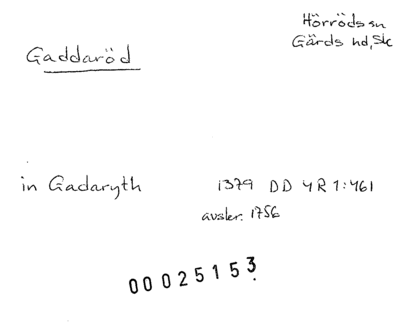 Hörröds sn
Gärds hd, Sk
Gaddaröd
in Gadaryth 1379 DD 4R 1:461
avskr. 1756
00025153